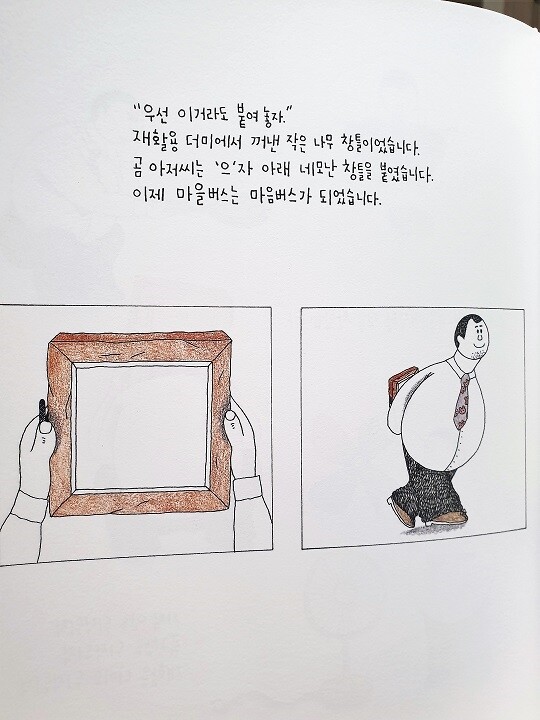 "우선 이거라도 붙여 놓자."
재활용 더미에서 꺼낸 작은 나무 창틀이었습니다.
곰 아저씨는 '으'자 아래 네모난 창틀을 붙였습니다.
이제 마을버스는 마음버스가 되었습니다.